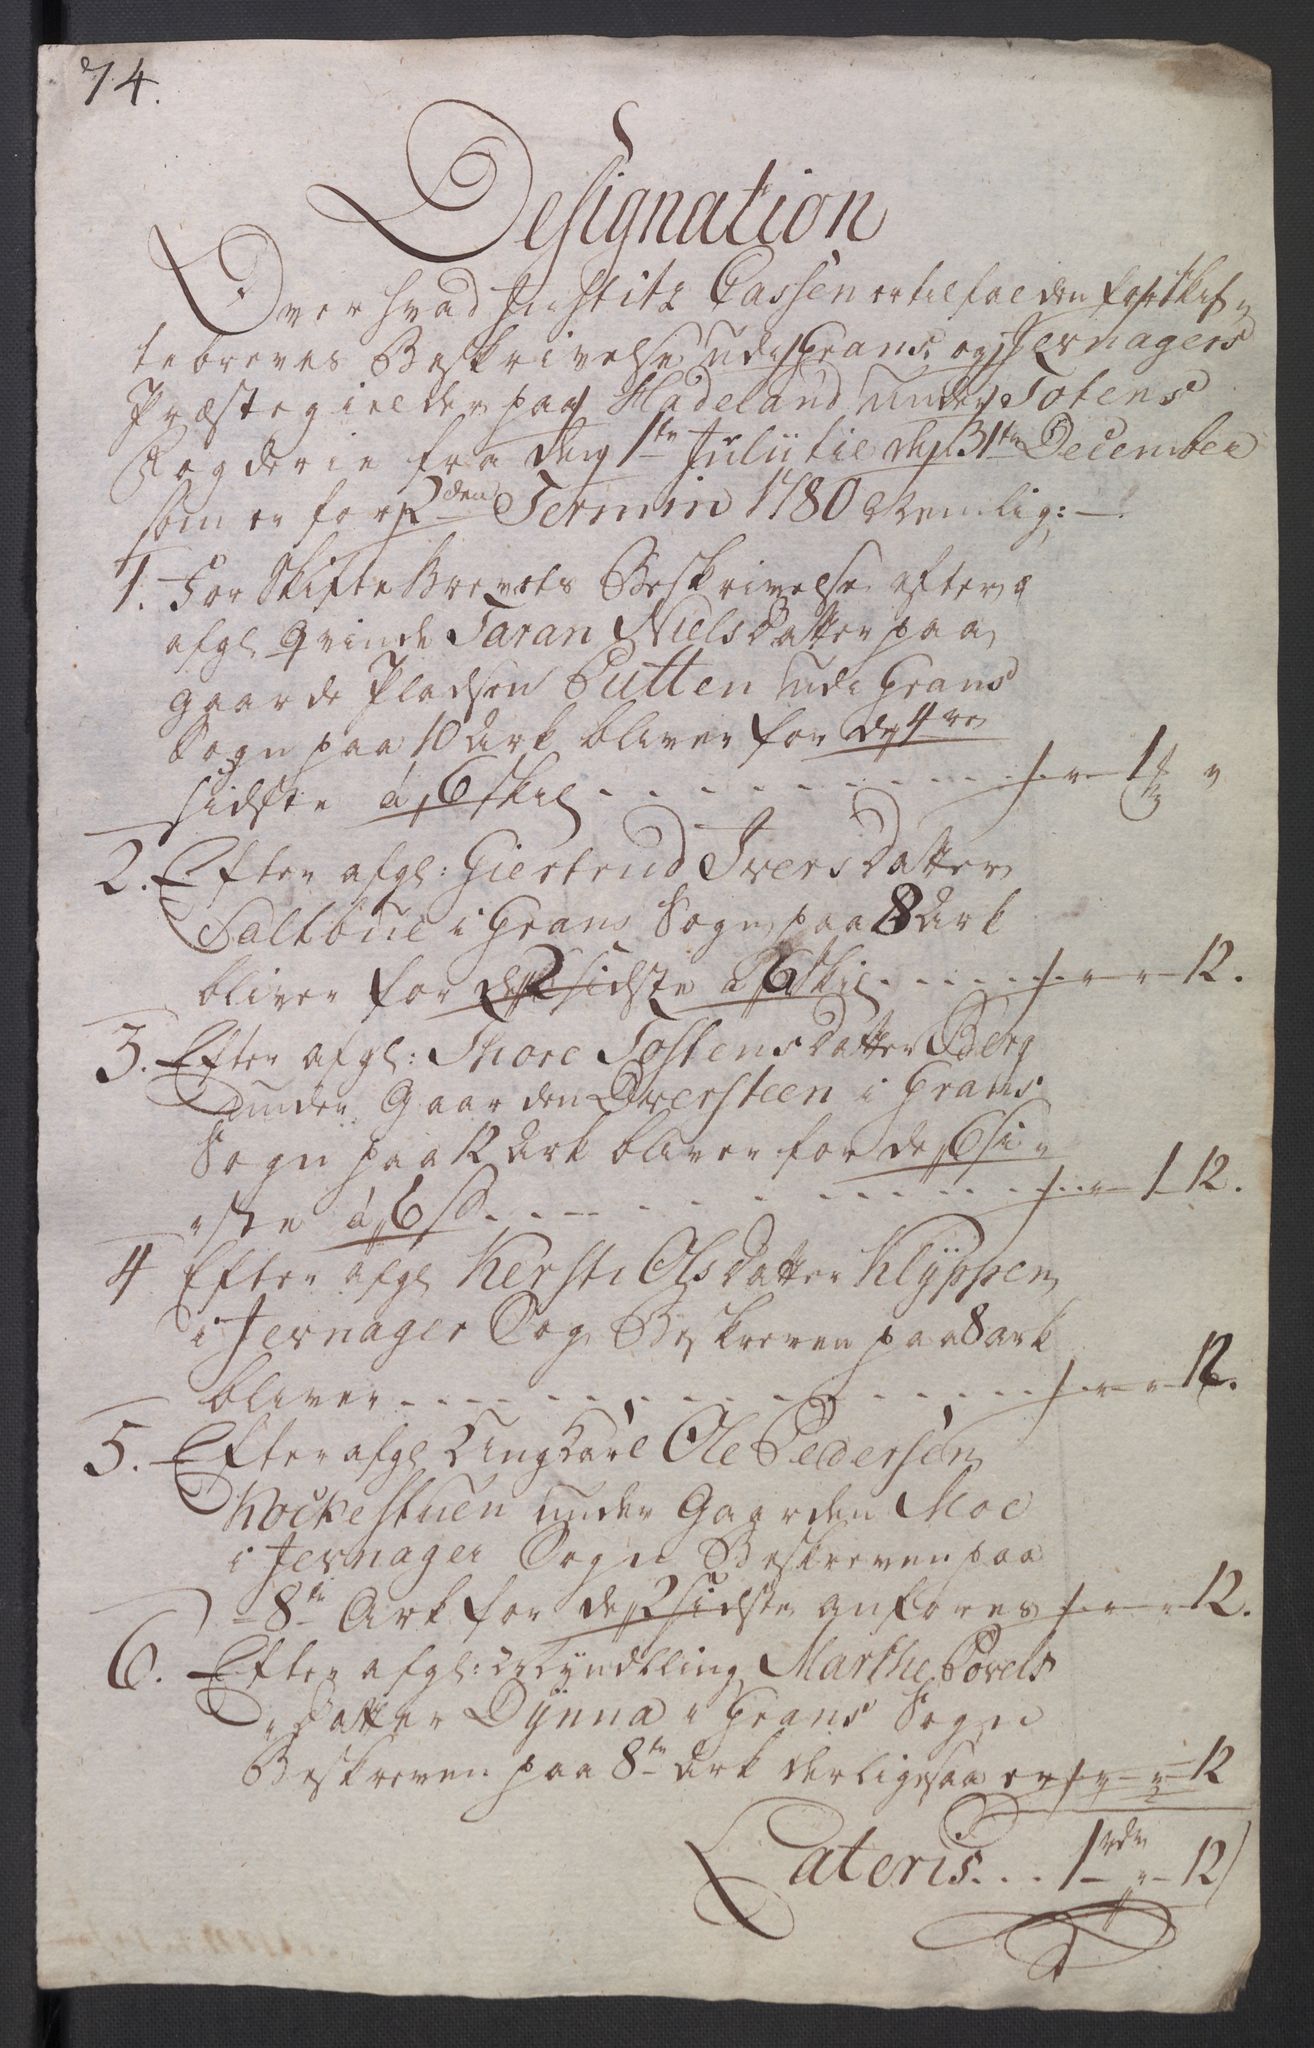 74.
Designation
Over hvad Justitz Cassen er tilfalden for Skif-
tebreves Beskrivelse udi Grans og Jevnagers
Præstegielder paa Hadeland under Totens
Fogderie fra den 1te Julii til den 31te December
som er for 2den Termin 1780 Nemlig: -
1. For Skifte Brevets Beskrivelse efter
afgl. Qvinde Taran Niels Datter paa
gaarde Pladsen Putten udi Grans
Sogn paa 10 Ark bliver for de 4re
sidste á 6 Skil - - - 1
2. Efter afgl: Giertrud Ivers Datter
Saltbüe i Grans Sogn paa 8 Ark
bliver for de 2 sidste á 6 Skil - - - 12.
3. Efter afgl: Thore Tostens Datter Berg
under Gaarden Oversteen i Grans
Sogn paa 12 Ark bliver for de 6 si-
ste á 6 s - - - 1 - 12.
4 Efter afgl Kersti Ols Datter Klÿppen
i Jevnager Sog Beskreven paa 8 ark
bliver - - - 12.
5. Efter afgl Ungkarl Ole Pedersen
Kockestuen under Gaarden Moe
i Jevnager Sogn Beskreven paa
8te Ark for de 2 sidste anføres - - 12.
6. Efter afgl: Myndtling Marthe Povels
Datter Dÿnna i Grans Sogn
Beskreven paa 8te Ark derligesaa er - - 12
Lateris . . . 1 rdr " - 12